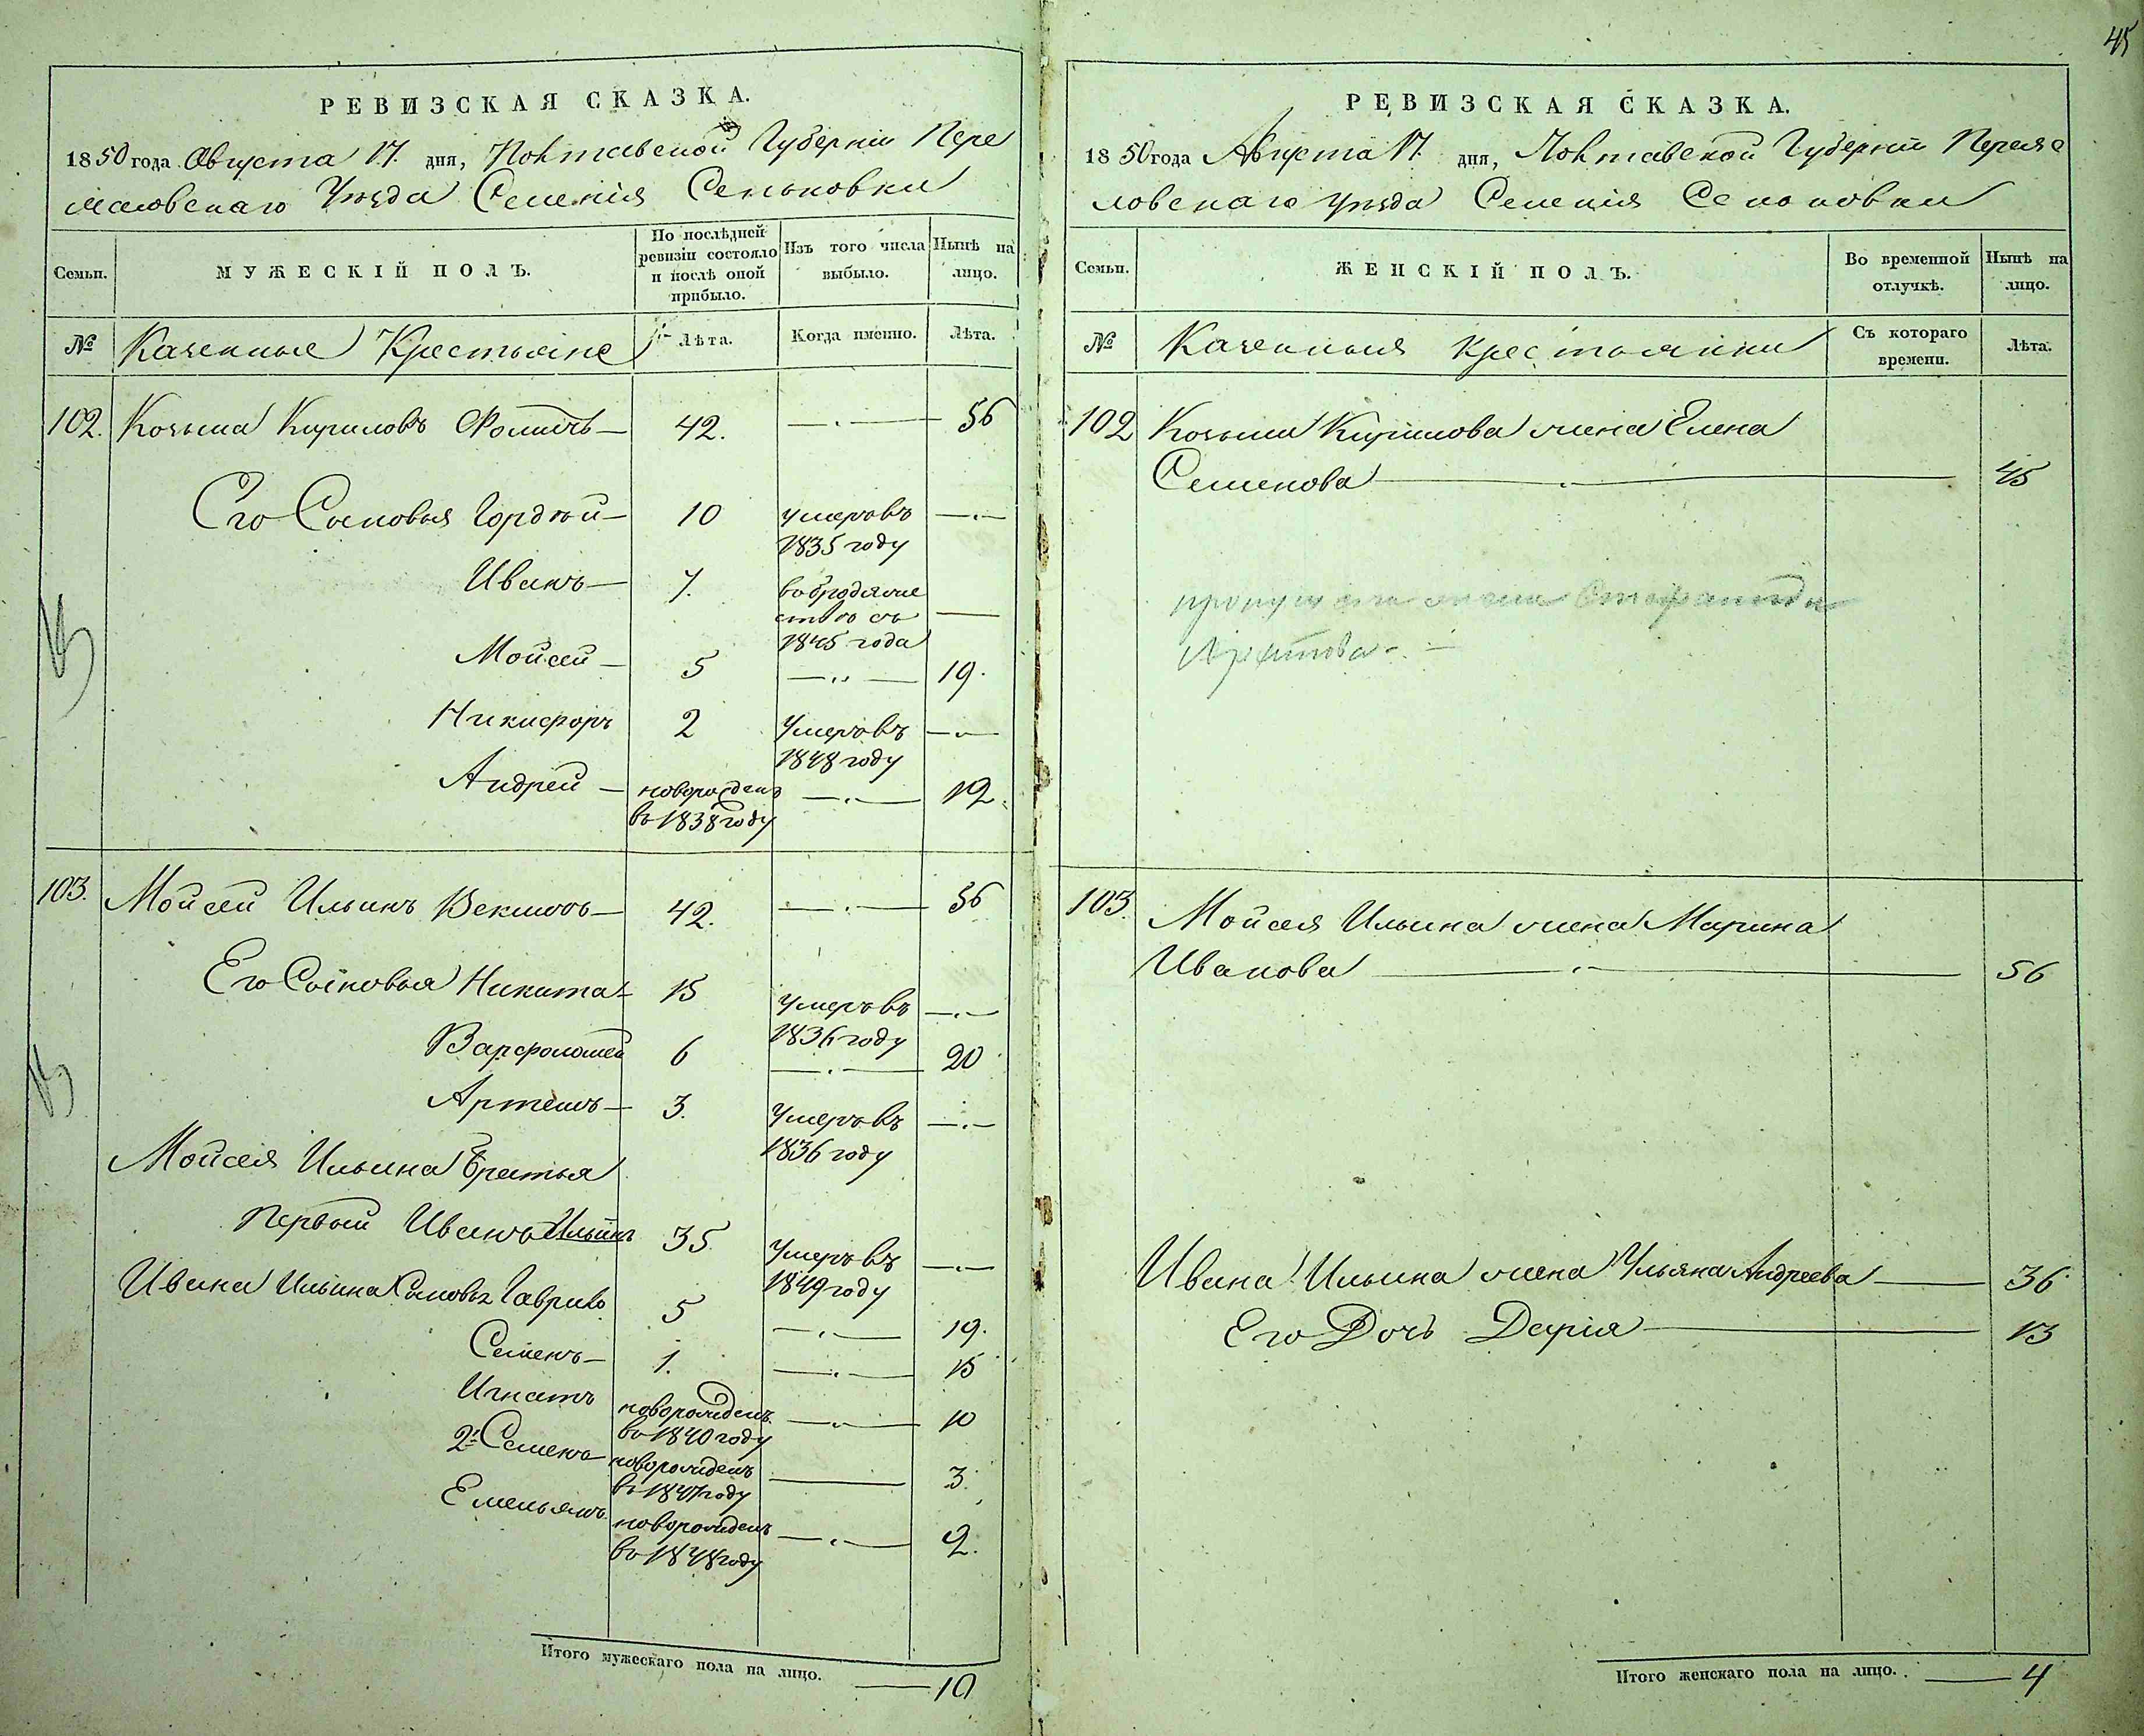 45
РЕВИЗСКАЯ СКАЗКА.
1850 года Августа 17. дня, Полтавской Губернии Пере
яславскаго Уезда Селенія Сеньковки
Семьи.
МУЖЕСКІЙ ПОЛЪ.
По послѣдней ревизіи состояло и послѣ оной прибыло.
Изъ того числа выбыло.
Нынѣ на лицо.
№ Казенные Крестьяне Лѣта. Когда именно. Лѣта.
102. Козьма Кириловъ 42. 56
Его Сыновья Гордѣй 10 умеръ въ
1835 году
Иванъ 7. в бродяже
ствѣ съ
1845 года
Мойсей 5 19.
Никифоръ 2 Умеръ въ
1848 году
Андрей новорожденъ 12.
въ 1838 году
103. Мойсей Ильинъ 42. 56
Его Сыновья Никита 15 Умеръ въ
1836 году
Варфоломей 6 20
Артемъ 3. Умеръ въ
1836 году
Мойсея Ильина Братья
Первый Иванъ Ильинъ 35. Умеръ въ
1849 году
Ивана Ильина Сыновья Гаврило 5 19.
Семенъ 1. 15
Игнатъ новорожденъ 10
въ 1840 году
2й Семенъ новорожденъ 3.
въ 1847 году
Емельянъ новорожденъ 2.
въ 1848 году
Итого мужескаго пола на лицо. 10
РЕВИЗСКАЯ СКАЗКА.
1850 года Августа 17. дня, Полтавской Губерніи Переяс
ловскаго уезда Селенія Сеньковки
Семьи.
ЖЕНСКІЙ ПОЛЪ.
Во временной отлучкѣ.
Нынѣ на лицо.
№ Казенныя Крестьянки Съ котораго времени. Лѣта.
102 Козьмы Кирилова жена Елена
Семенова 45
103. Мойсея Ильина жена Марина
Иванова 56
Ивана Ильина жена Ульяна Андреева 36
Его Дочь Дарія 13
Итого женскаго пола на лицо. 4